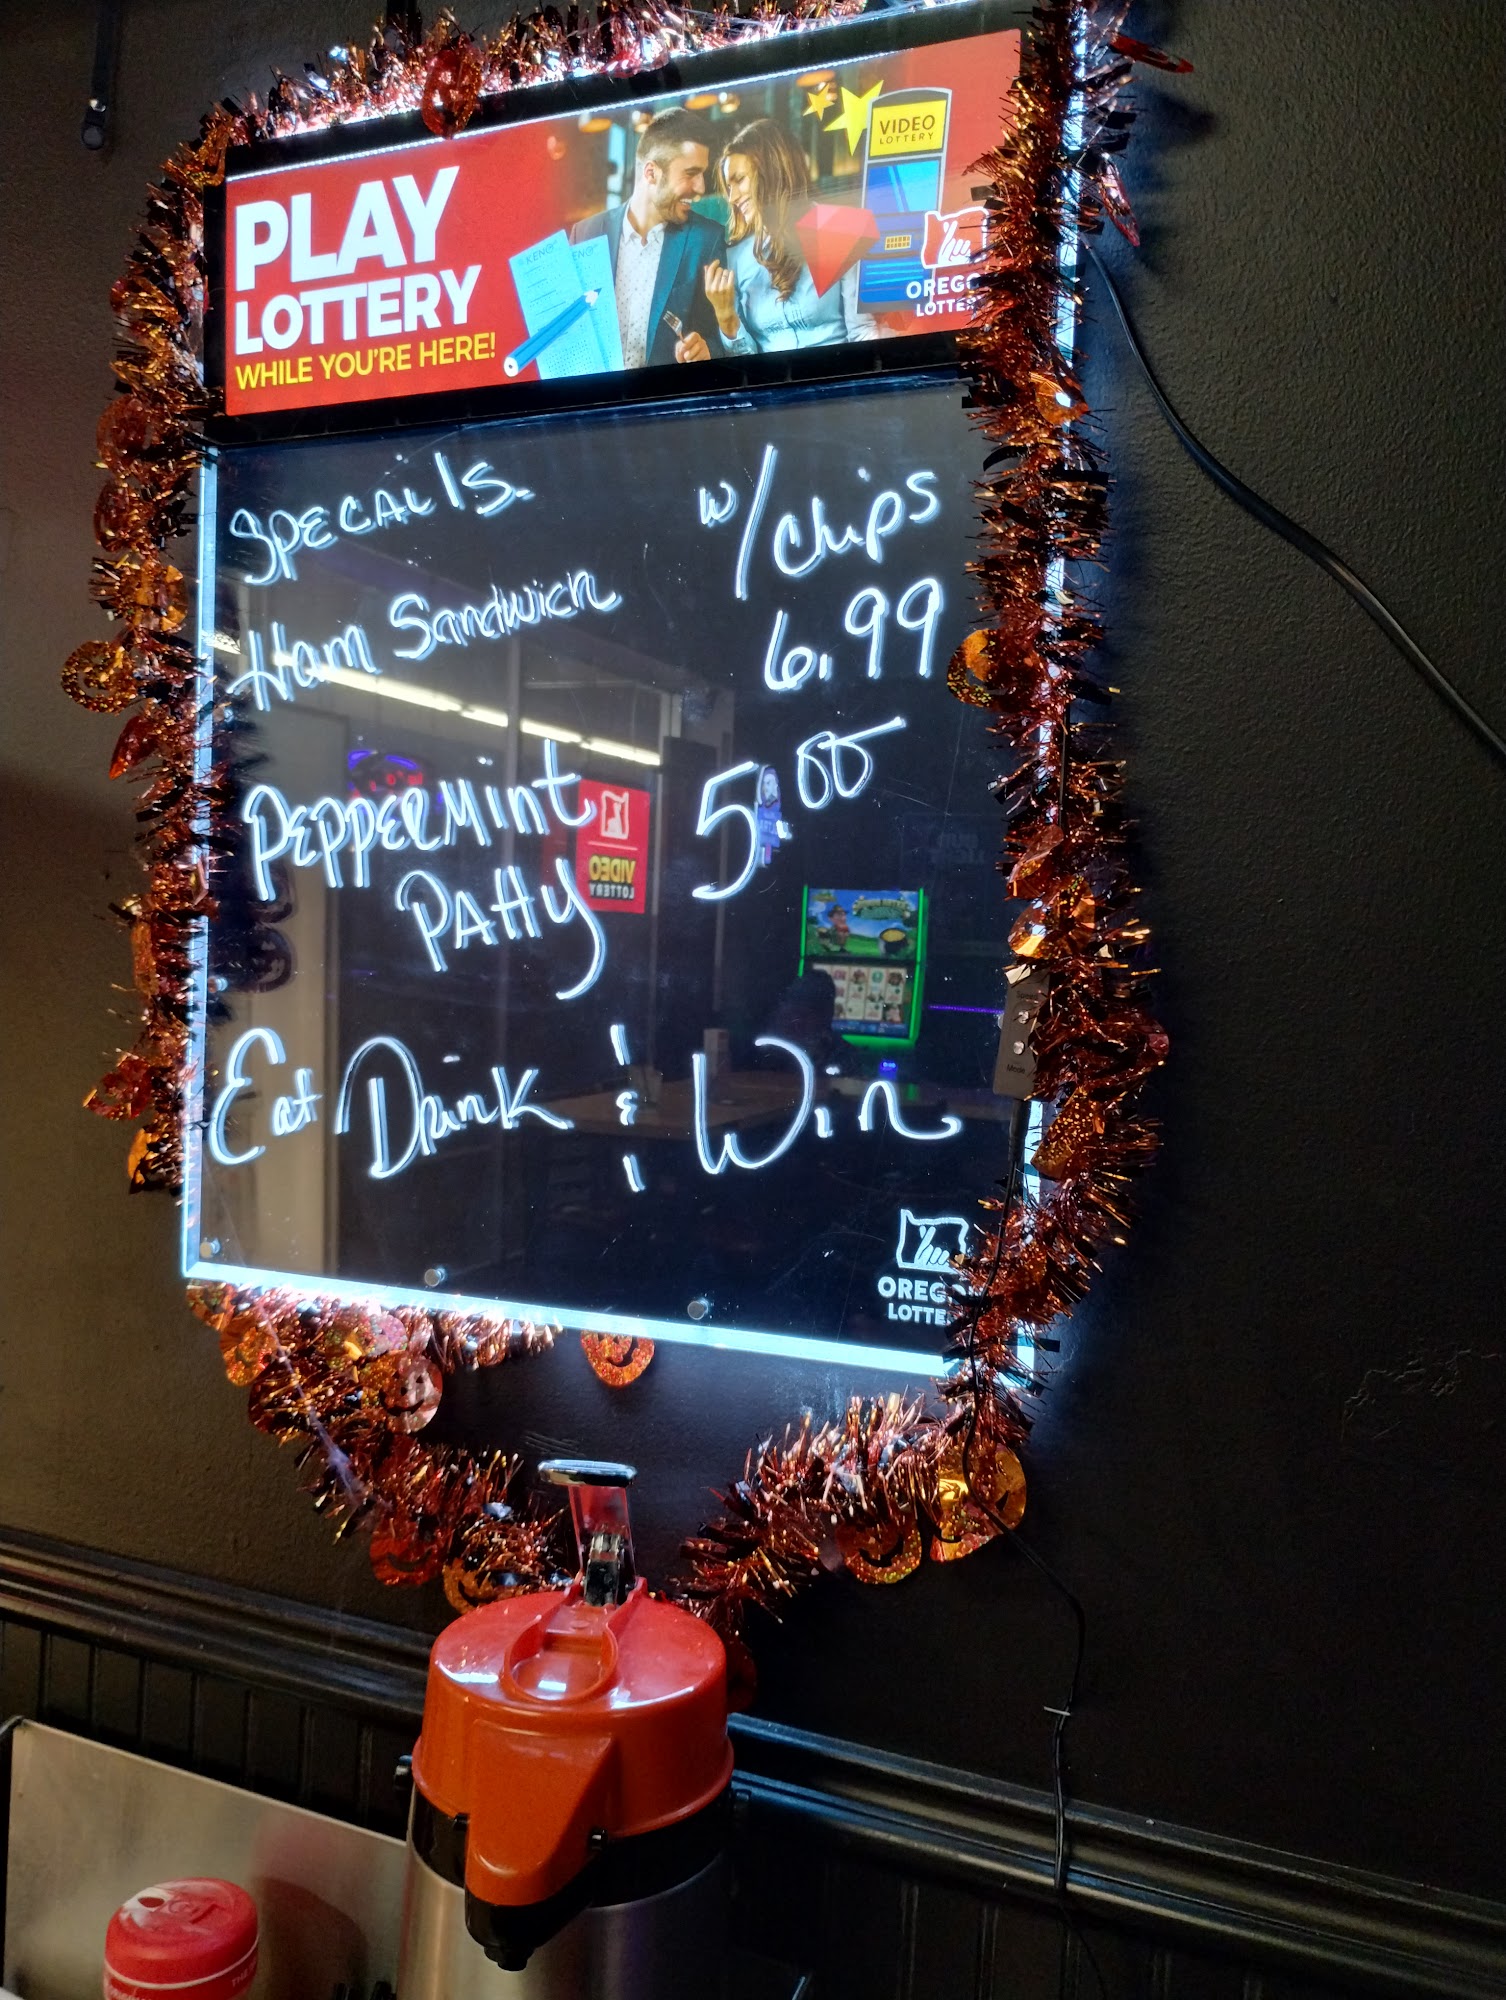 PLAY
LOTTERY
WHILE YOU'RE HERE!
KENO
KENO
VIDEO
LOTTERY
OREGO
LOTTE
SPECALIS. w/chips
Ham Sandwich 6.99
PEPPERMint 5.00
PAtty
Eat Drink & Win
VIDEO
LOTTERY
OREGO
LOTTE
Mode